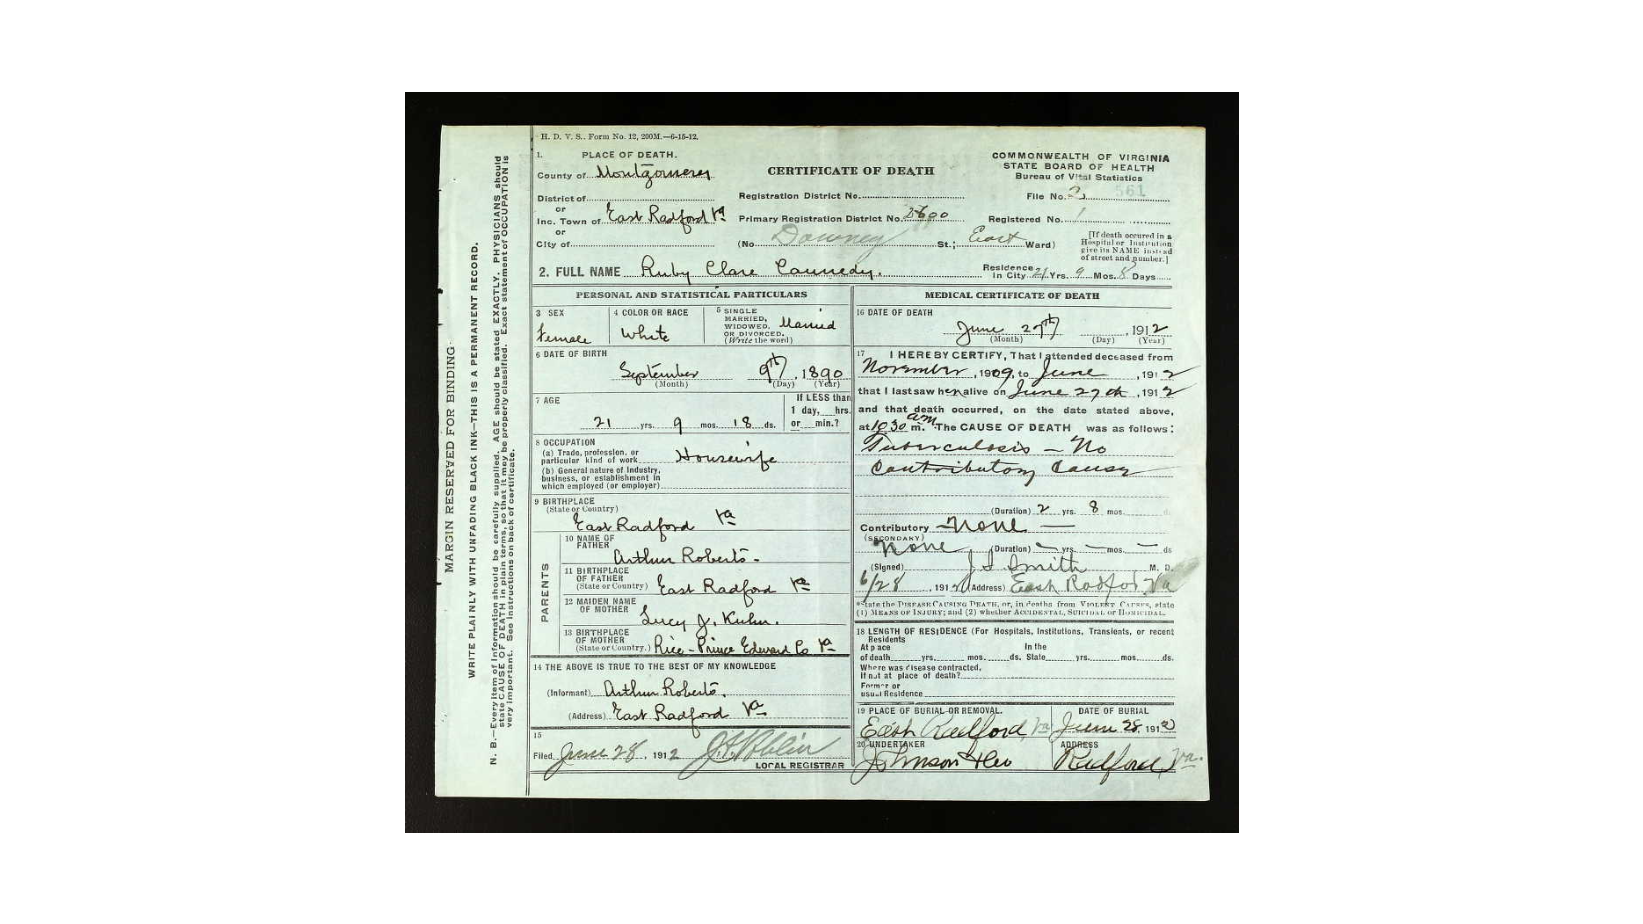 H. D. V. S.. Form No. 12, 200M.—6-15-12.
1. PLACE OF DEATH.
County of Montgomery
District of
or
Inc. Town of East Radford Va
or
City of
CERTIFICATE OF DEATH
Registration District No.
Primary Registration District No.
(No Downey St.; East Ward)
COMMONWEALTH OF VIRGINIA
STATE BOARD OF HEALTH
Bureau of Vital Statistics
File No.
Registered No. 1
[If death occured in a
Hospital or Institution
give its NAME instead
of street and number.]
2. FULL NAME Ruby Clare Cannedy.
Residence
in City 21 Yrs. 9 Mos. 8 Days
PERSONAL AND STATISTICAL PARTICULARS
3 SEX
Female
4 COLOR OR RACE
White
5 SINGLE
MARRIED,
WIDOWED.
OR DIVORCED.
(Write the word)
Married
6 DATE OF BIRTH
September 9th, 1890
(Month) (Day) (Year)
7 AGE
21 yrs. 9 mos. 18 ds.
If LESS than
1 day, hrs.
or min.?
8 OCCUPATION
(a) Trade, profession, or
particular kind of work Housewife
(b) General nature of Industry,
business, or establishment in
which employed (or employer)
9 BIRTHPLACE
(State or Country)
East Radford Va
PARENTS
10 NAME OF
FATHER
Arthur Roberts-
11 BIRTHPLACE
OF FATHER
(State or Country) East Radford Va
12 MAIDEN NAME
OF MOTHER
Lucy J. Kuhn.
13 BIRTHPLACE
OF MOTHER
(State or Country.) Rice-Prince Edward Co Va
14 THE ABOVE IS TRUE TO THE BEST OF MY KNOWLEDGE
(Informant) Arthur Roberts.
(Address) East Radford Va
15
Filed June 28, 1912
LOCAL REGISTRAR
MEDICAL CERTIFICATE OF DEATH
16 DATE OF DEATH
June 27th, 1912
(Month) (Day) (Year)
17 I HEREBY CERTIFY, That I attended deceased from
November, 1909, to June, 1912
that I last saw her alive on June 27th, 1912
and that death occurred, on the date stated above,
at 10 30 a.m. The CAUSE OF DEATH was as follows:
Tuberculosis – No
Contributory Cause
(Duration) 2 yrs. 8 mos. ds.
Contributory None
(SECONDARY)
None (Duration) yrs. mos. ds
(Signed) J. S. Smith M. D.
6/28, 1912 (Address) East Radford, Va
*State the DISEASE CAUSING DEATH, or, in deaths from VIOLENT CAUSES, state
(1) MEANS OF INJURY; and (2) whether ACCIDENTAL, SUICIDAL or HOMICIDAL.
18 LENGTH OF RESIDENCE (For Hospitals, Institutions, Transients, or recent
Residents
At place In the
of death yrs. mos. ds. State yrs. mos. ds.
Where was disease contracted,
If not at place of death?
Former or
usual Residence
19 PLACE OF BURIAL OR REMOVAL. DATE OF BURIAL
East Radford Va June 28, 1912
20 UNDERTAKER ADDRESS
Johnson Radford, Va.
MARGIN RESERVED FOR BINDING
WRITE PLAINLY WITH UNFADING BLACK INK—THIS IS A PERMANENT RECORD.
N. B.—Every item of Information should be carefully supplied. AGE should be stated EXACTLY. PHYSICIANS should
state CAUSE OF DEATH in plain terms, so that it may be properly classified. Exact statement of OCCUPATION is
very important. See instructions on back of certificate.